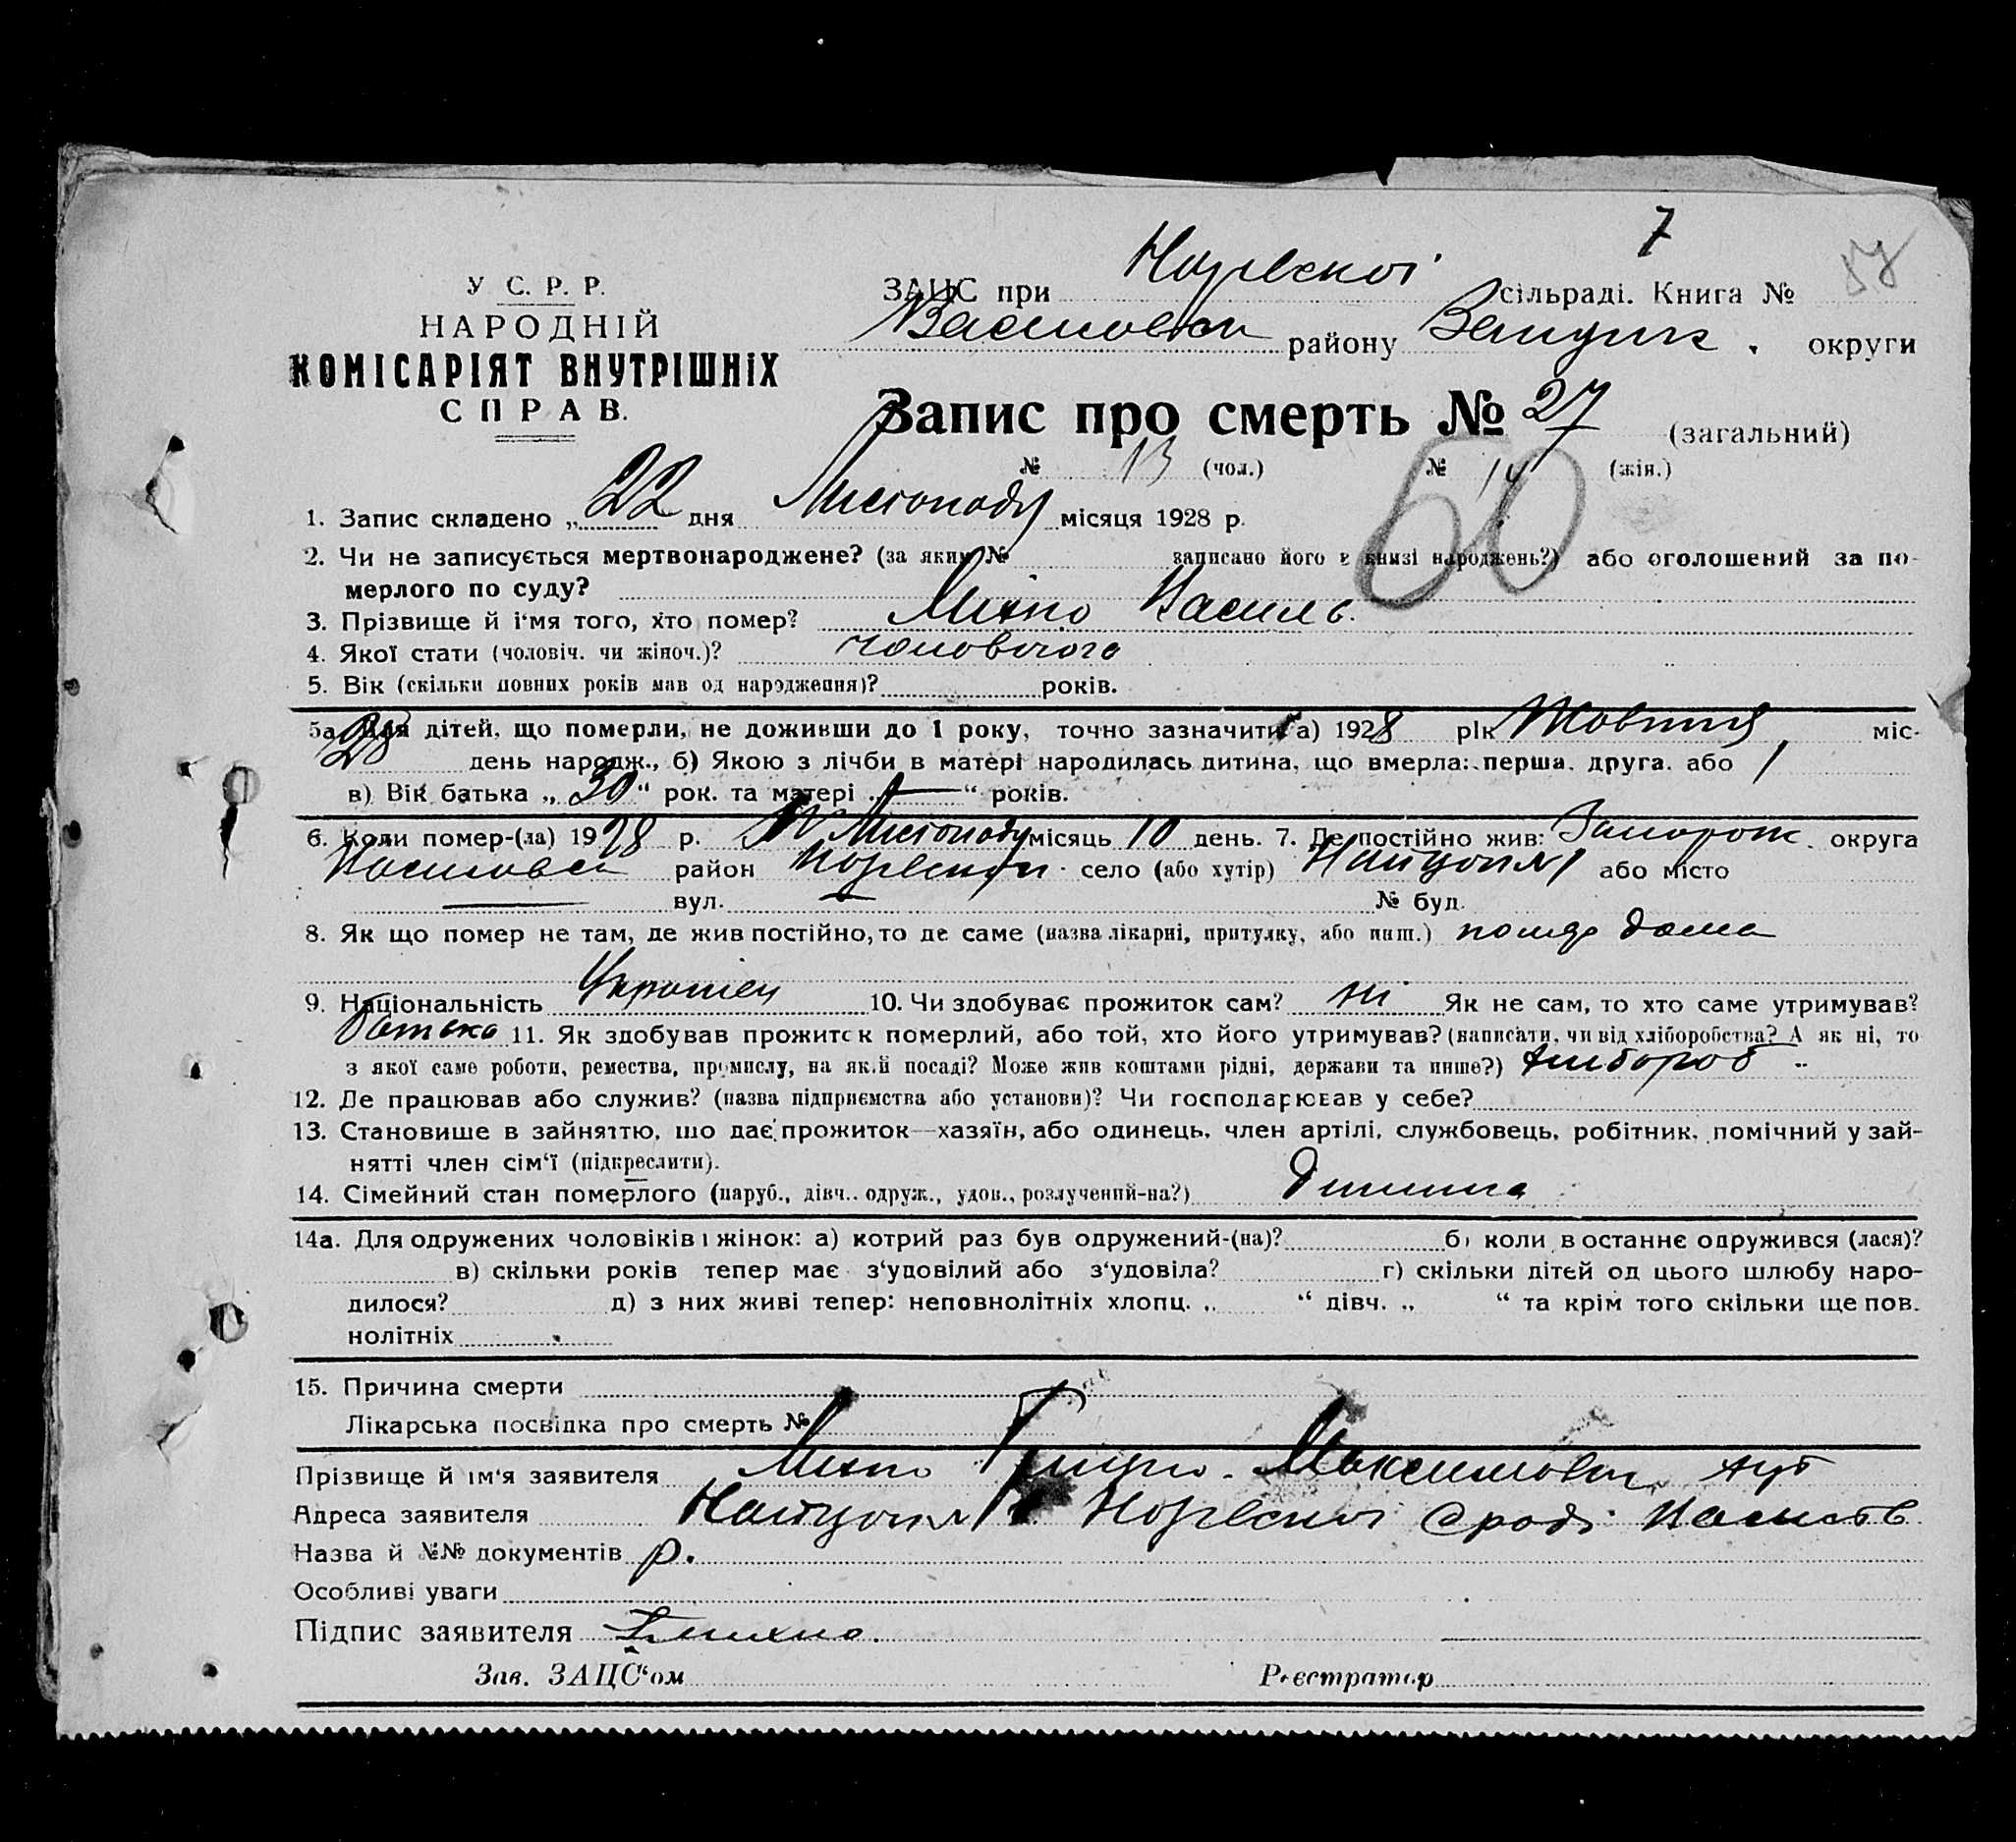 7
У С. Р. Р.
НАРОДНІЙ
КОМІСАРІЯТ ВНУТРІШНІХ
СПРАВ.
ЗАЦС при сільраді. Книга №
району округи
Запис про смерть № 27 (загальний)
№ 13 (чол.) № 14 (жін.)
50
1. Запис складено „ 22 дня Листопаду місяця 1928 р.
2. Чи не записується мертвонароджене? (за яким № записано його в книзі народжень?) або оголошений за по-
мерлого по суду?
3. Прізвище й і'мя того, хто помер? Михно Василь.
4. Якої стати (чоловіч. чи жіноч.)? чоловічого
5. Вік (скільки повних років мав од народження)? років.
5а. Для дітей, що померли, не доживши до 1 року, точно зазначити а) 1928 рік Жовтня міс-
28 день народж., б) Якою з лічби в матері народилась дитина, що вмерла: перша, друга, або 1
в) Вік батька „ 30 “ рок. та матері „ — “ років.
6. Коли помер-(ла) 1928 р. Листопаду місяць 10 день. 7. Де постійно жив: Запорож. округа
район село (або хутір) або місто
вул. № буд.
8. Як що помер не там, де жив постійно, то де саме (назва лікарні, притулку, або инш.) дома
9. Національність Українец 10. Чи здобуває прожиток сам? ні Як не сам, то хто саме утримував?
батько 11. Як здобував прожиток померлий, або той, хто його утримував? (написати, чи від хліборобства? А як ні, то
з якої саме роботи, ремества, промислу, на якій посаді? Може жив коштами рідні, держави та инше?) хлібороб
12. Де працював або служив? (назва підприємства або установи)? Чи господарював у себе?
13. Становише в зайняттю, що дає прожиток—хазяїн, або одинець, член артілі, службовець, робітник, помічний у зай-
нятті член сім'ї (підкреслити).
14. Сімейний стан померлого (паруб., дівч.. одруж., удов., розлучений-на?) Дитина
14а. Для одружених чоловіків і жінок: а) котрий раз був одружений-(на)? б) коли в останнє одружився (лася)?
в) скільки років тепер має з'удовілий або з'удовіла? г) скільки дітей од цього шлюбу наро-
дилося? д) з них живі тепер: неповнолітніх хлопц. „ “ дівч. „ “ та крім того скільки ще пов.
нолітніх
15. Причина смерти
Лікарська посвідка про смерть №
Прізвище й ім'я заявителя Михно Максимович хут
Адреса заявителя
Назва й №№ документів р.
Особливі уваги
Підпис заявителя
Зав. ЗАЦС'ом Реєстратор